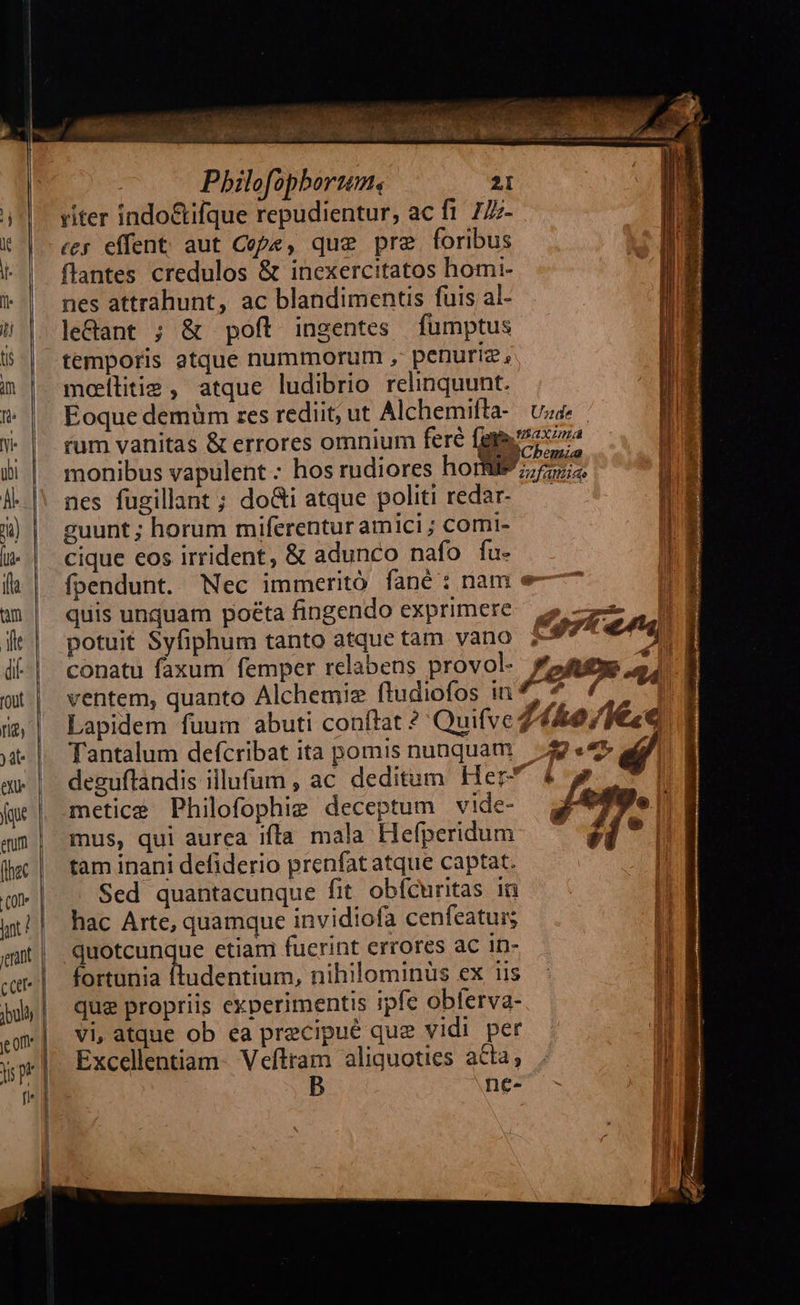 Philoſophorum. 21
riter indoctiſque repudientur, ac ſi Illi-
ces eſſent aut Copæ, quæ præ foribus
ſtantes credulos & inexercitatos homi-
nes attrahunt, ac blandimentis ſuis al-
lectant ; & poſt ingentes ſumptus
temporis atque nummorum, penuriæ,
mœſtitiæ, atque ludibrio relinquunt.
Eoque demùm res rediit, ut Alchemiſta- Unde
rum vanitas & errores omnium ferè maxima
monibus vapulent : hos rudiores Chemiæ
nes ſugillant ; docti atque politi redar- infamia.
guunt ; horum miſerentur amici ; comi-
cique eos irrident, & adunco naſo ſu-
ſpendunt. Nec immeritò ſanè : nam
quis unquam poëta fingendo exprimere
potuit Syſiphum tanto atque tam vano
conatu ſaxum ſemper relabens provol-
ventem, quanto Alchemiæ ſtudioſos in
Lapidem ſuum abuti conſtat ? Quiſve
Tantalum deſcribat ita pomis nunquam
deguſtandis illuſum, ac deditum Her-
meticæ Philoſophiæ deceptum vide-
mus, qui aurea iſta mala Heſperidum
tam inani deſiderio prenſat atque captat.
Sed quantacunque ſit obſcuritas in
hac Arte, quamque invidioſa cenſeatur;
quotcunque etiam fuerint errores ac in-
fortunia ſtudentium, nihilominùs ex iis
quæ propriis experimentis ipſe obſerva-
vi, atque ob ea præcipuè quæ vidi per
Excellentiam Veſtram aliquoties acta,
B ne-